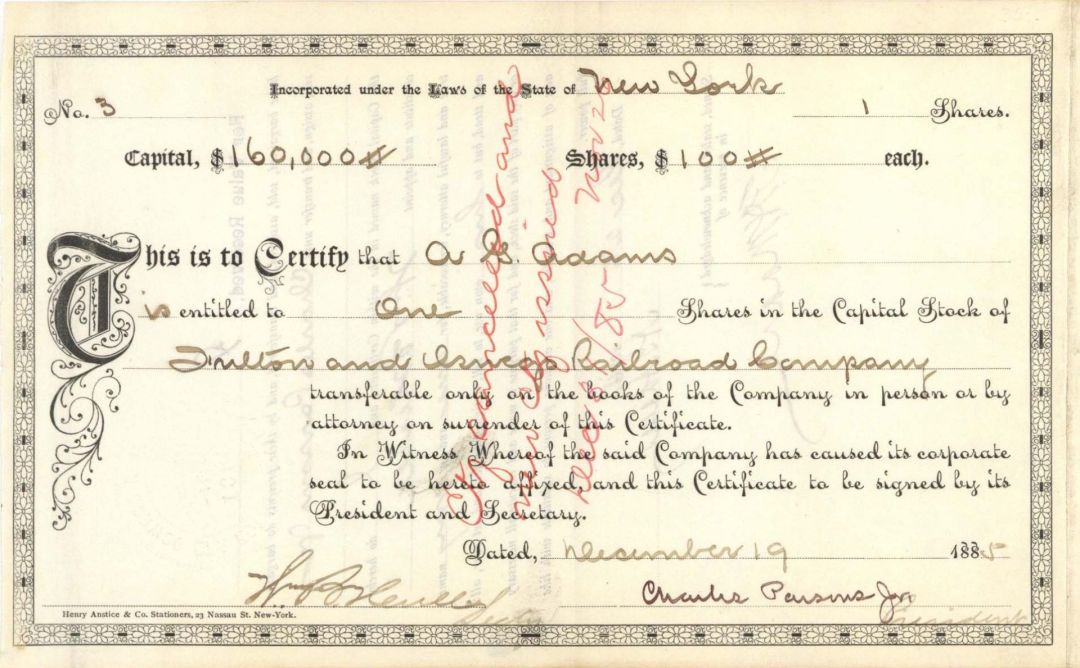 Incorporated under the Laws of the State of New York
No. 3
1 Shares.
Capital, $ 160,000
Shares, $ 100 each.
This is to Certify that A G. Adams
is entitled to One Shares in the Capital Stock of
Fulton and Oswego Railroad Company
transferable only on the books of the Company in person or by
attorney on surrender of this Certificate.
In Witness Whereof the said Company has caused its corporate
seal to be hereto affixed, and this Certificate to be signed by its
President and Secretary.
Dated, December 19 1885
Charles Parsons Jr
Secty
President
Henry Anstice & Co. Stationers, 23 Nassau St. New-York.
Cancelled and
new ctf issued
Dec 31/85 No